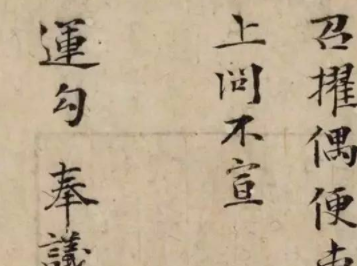 召擢偶便
上问不宣
運勾 奉議